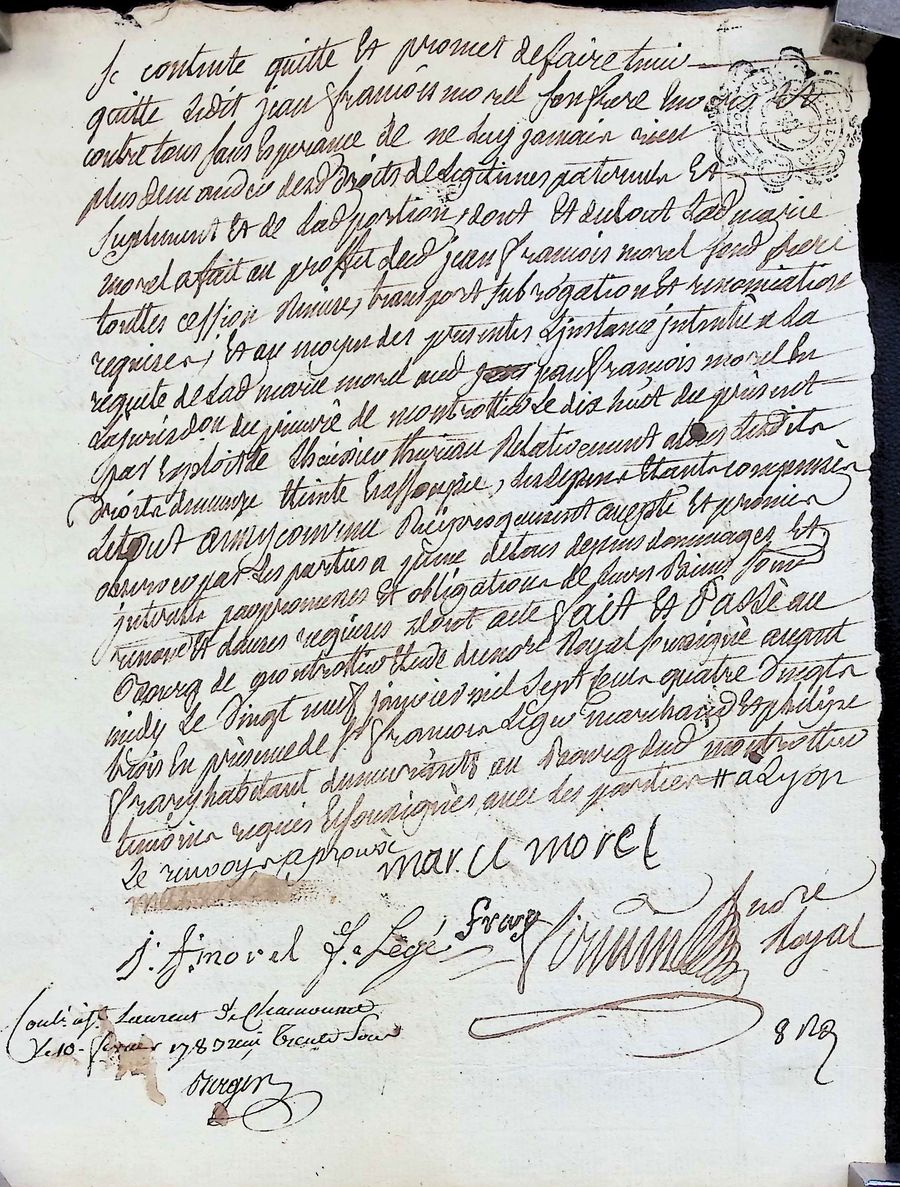 Se contente quitte Et promet de faire tenir
quitte ledit jean francois morel son frere Envers Et
contre tous sans Esperance de ne luy jamais rien
plus demander desd droits de Legitimes paternels Et
suplement Et de Lad portion, dont Et du tout Lad marie
morel a fait au proffit dud jean francois morel sond frere
touttes cession remise, transport subrogation Et renonciation
requises, Et au moyen des presentes L'instance intentée a La
requete de Lad marie morel aud jean francois morel En
La jurisdon du prieuré de montrottier Le dix huit du present
par Exploit de Relativement a tous susdits
droits demeure Eteinte Et assoupie, Les depens Etants compensés
Le tout ainsy convenu Reciproquement accepté Et promis
observer par Les parties a peine de tous depens dommages Et
interets par promesses Et obligations de Leurs Biens soumon
renonon Et clauses requises dont acte fait Et Passé au
Bourg de montrottier Etude du notre Royal soussigné avant
midy Le Vingt neuf janvier mil sept Cent quatre Vingts
trois En presence de sr francois Légé marchand Et philipe
frary habitant demeurants au Bourg dud montrottier
temoins requis Et soussignés avec Les parties # a Lyon
Le renvoy approuvé
marie morel
j. f. morel f. Légé frary notre
Royal
Conlé à St Laurent de Chamousset
Le 10 fevrier 1783 reçu trente sous
Berger